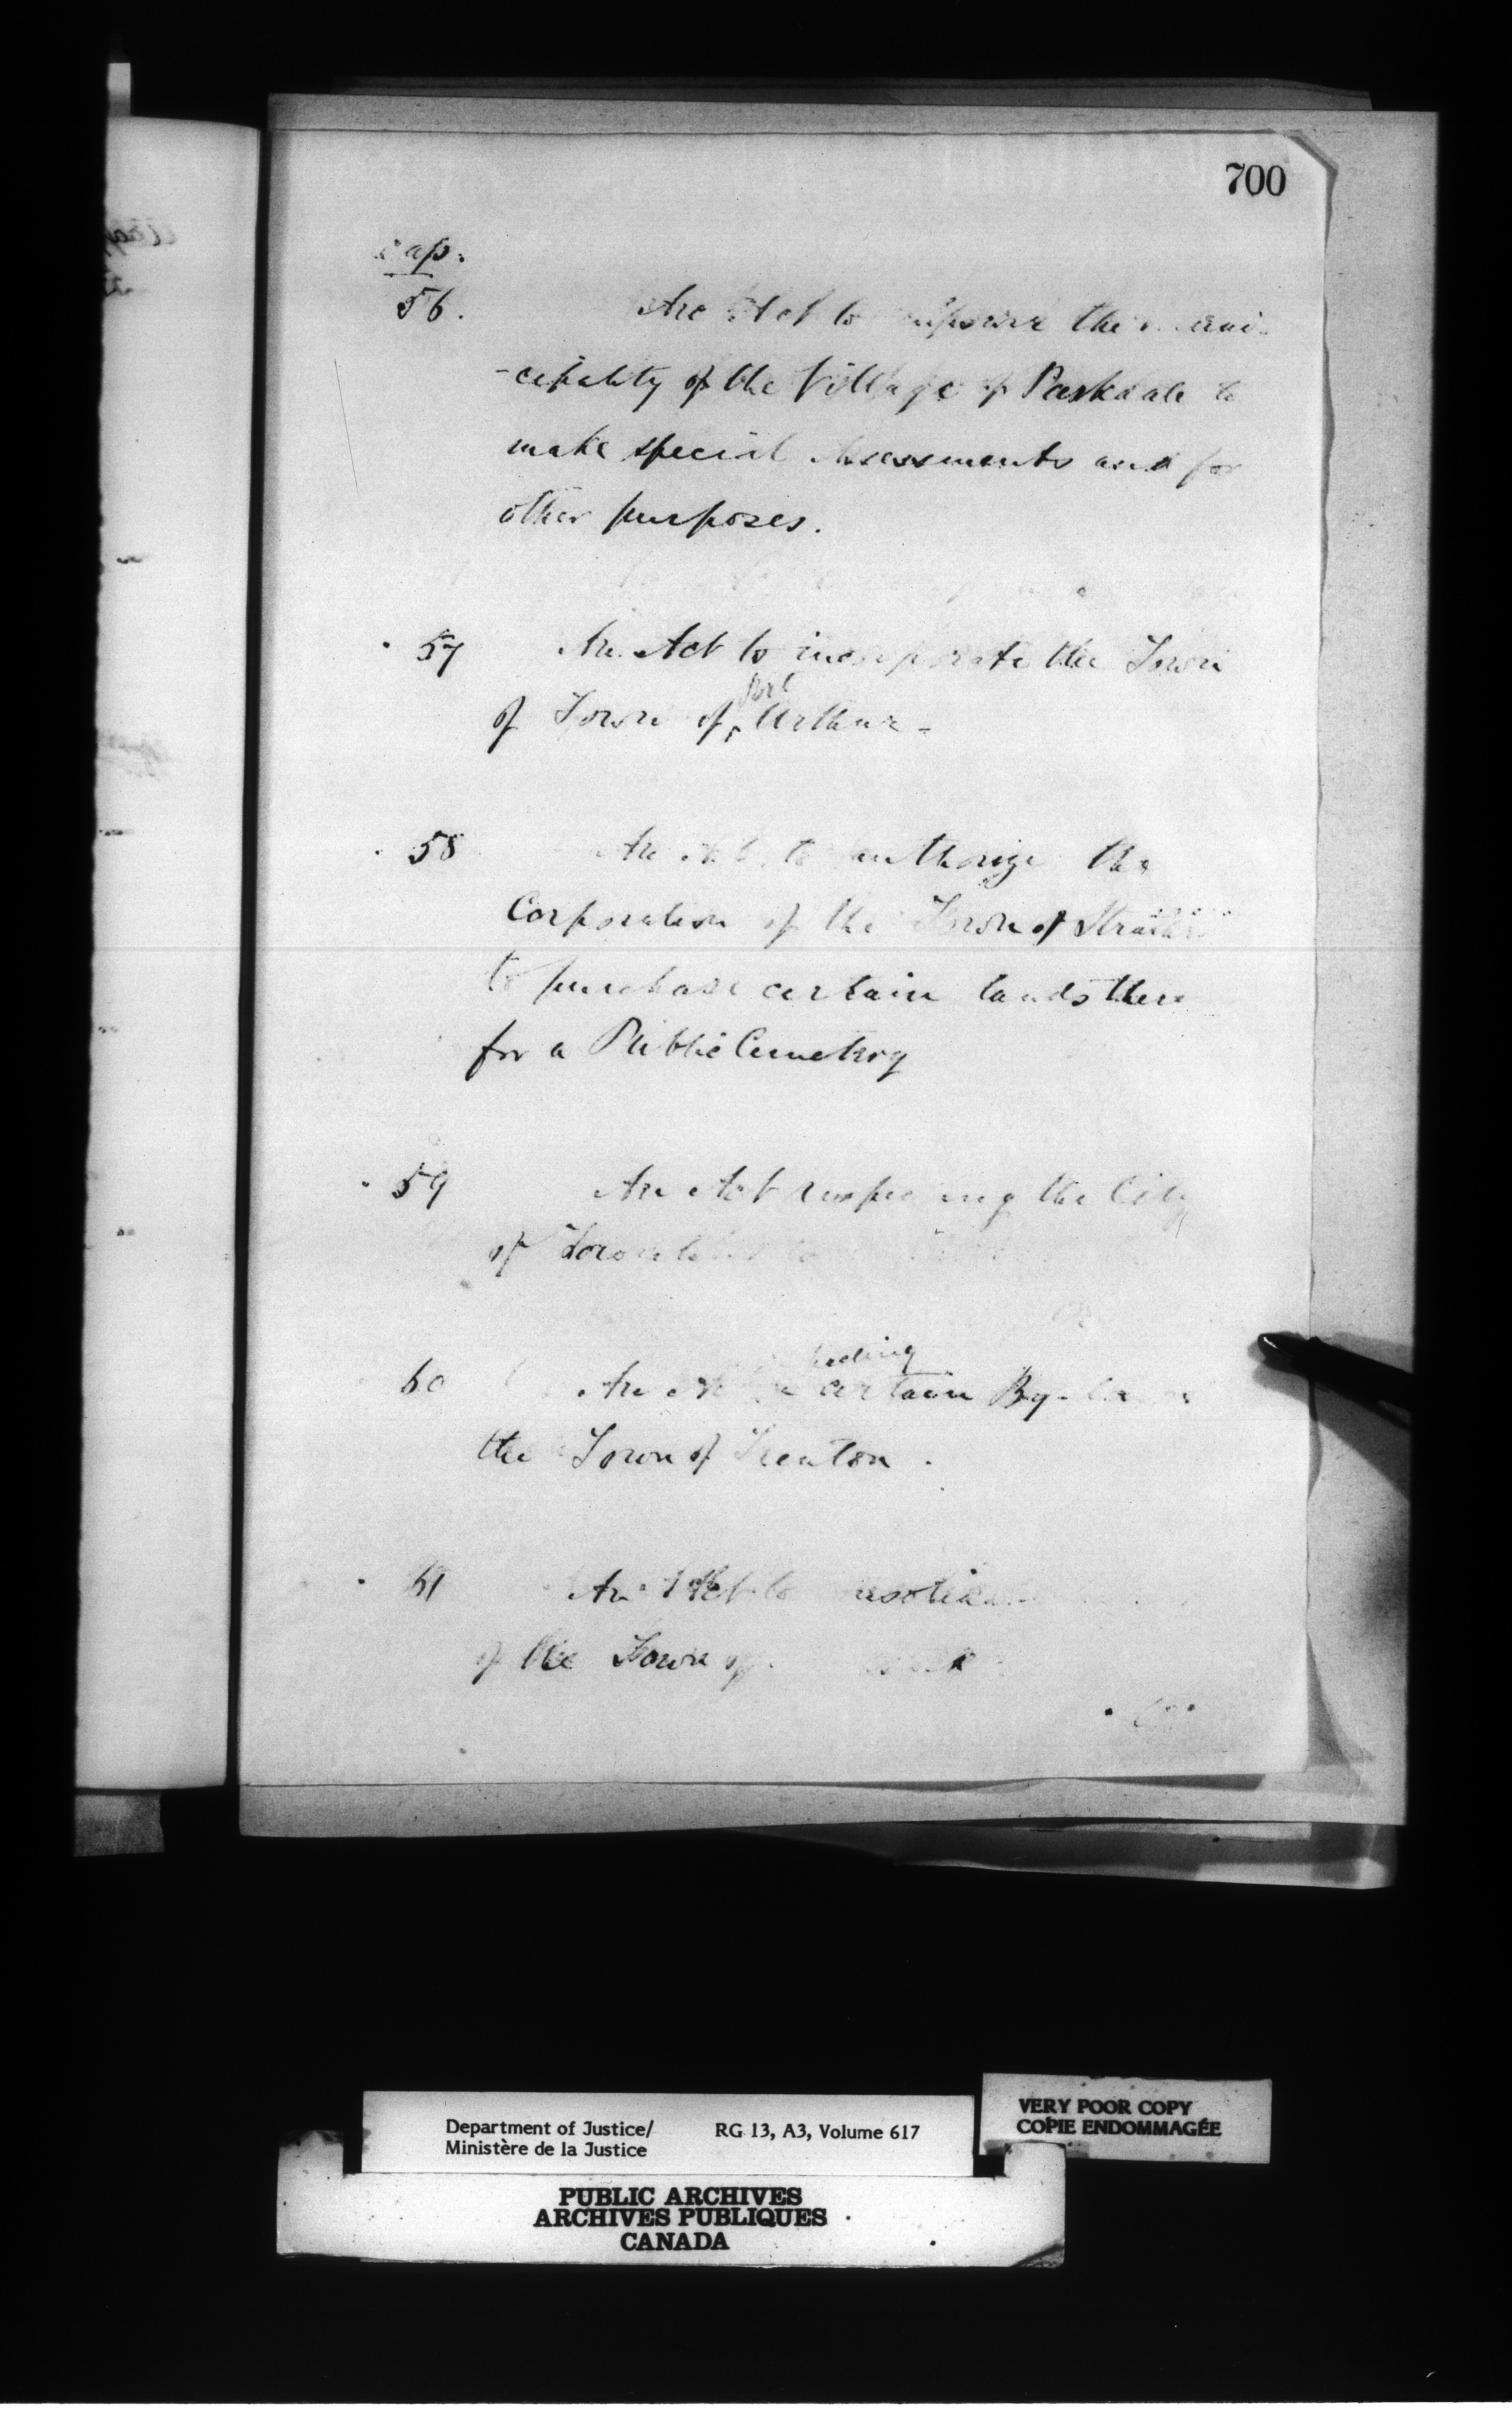 700
cap.
56. An Act to empower the muni-
-cipality of the Village of Parkdale to
make special Assessments and for
other purposes.
57 An Act to incorporate the Town
of Town of Port Arthur -
58 An Act to authorize the
Corporation of the Town of
to purchase certain lands there
for a Public Cemetery
59 An Act respecting the City
of Toronto
60 An Act certain By-
the Town of Trenton.
61 An Act to
of the Town of
Department of Justice/
Ministère de la Justice
RG 13, A3, Volume 617
VERY POOR COPY
COPIE ENDOMMAGÉE
PUBLIC ARCHIVES
ARCHIVES PUBLIQUES
CANADA